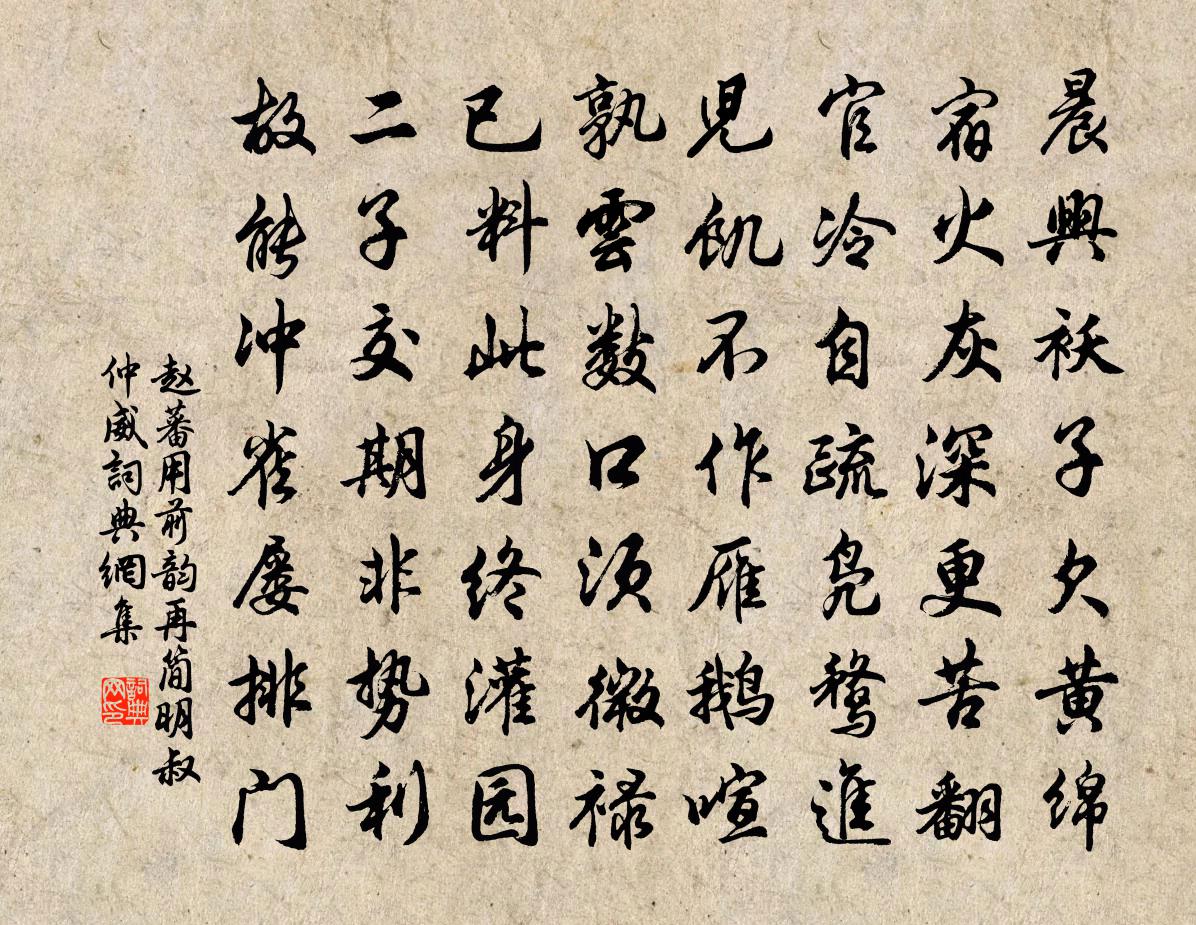 晨興袄子欠黄綿
宿火灰深更苦翻
官冷自疏凫鶩進
兒飢不作雁鵝喧
孰雲數口须微禄
已料此身终灌园
二子交期非势利
故能冲雀屡排门
赵蕃用前韵再简明叔
仲威詞典網集
詞典网印